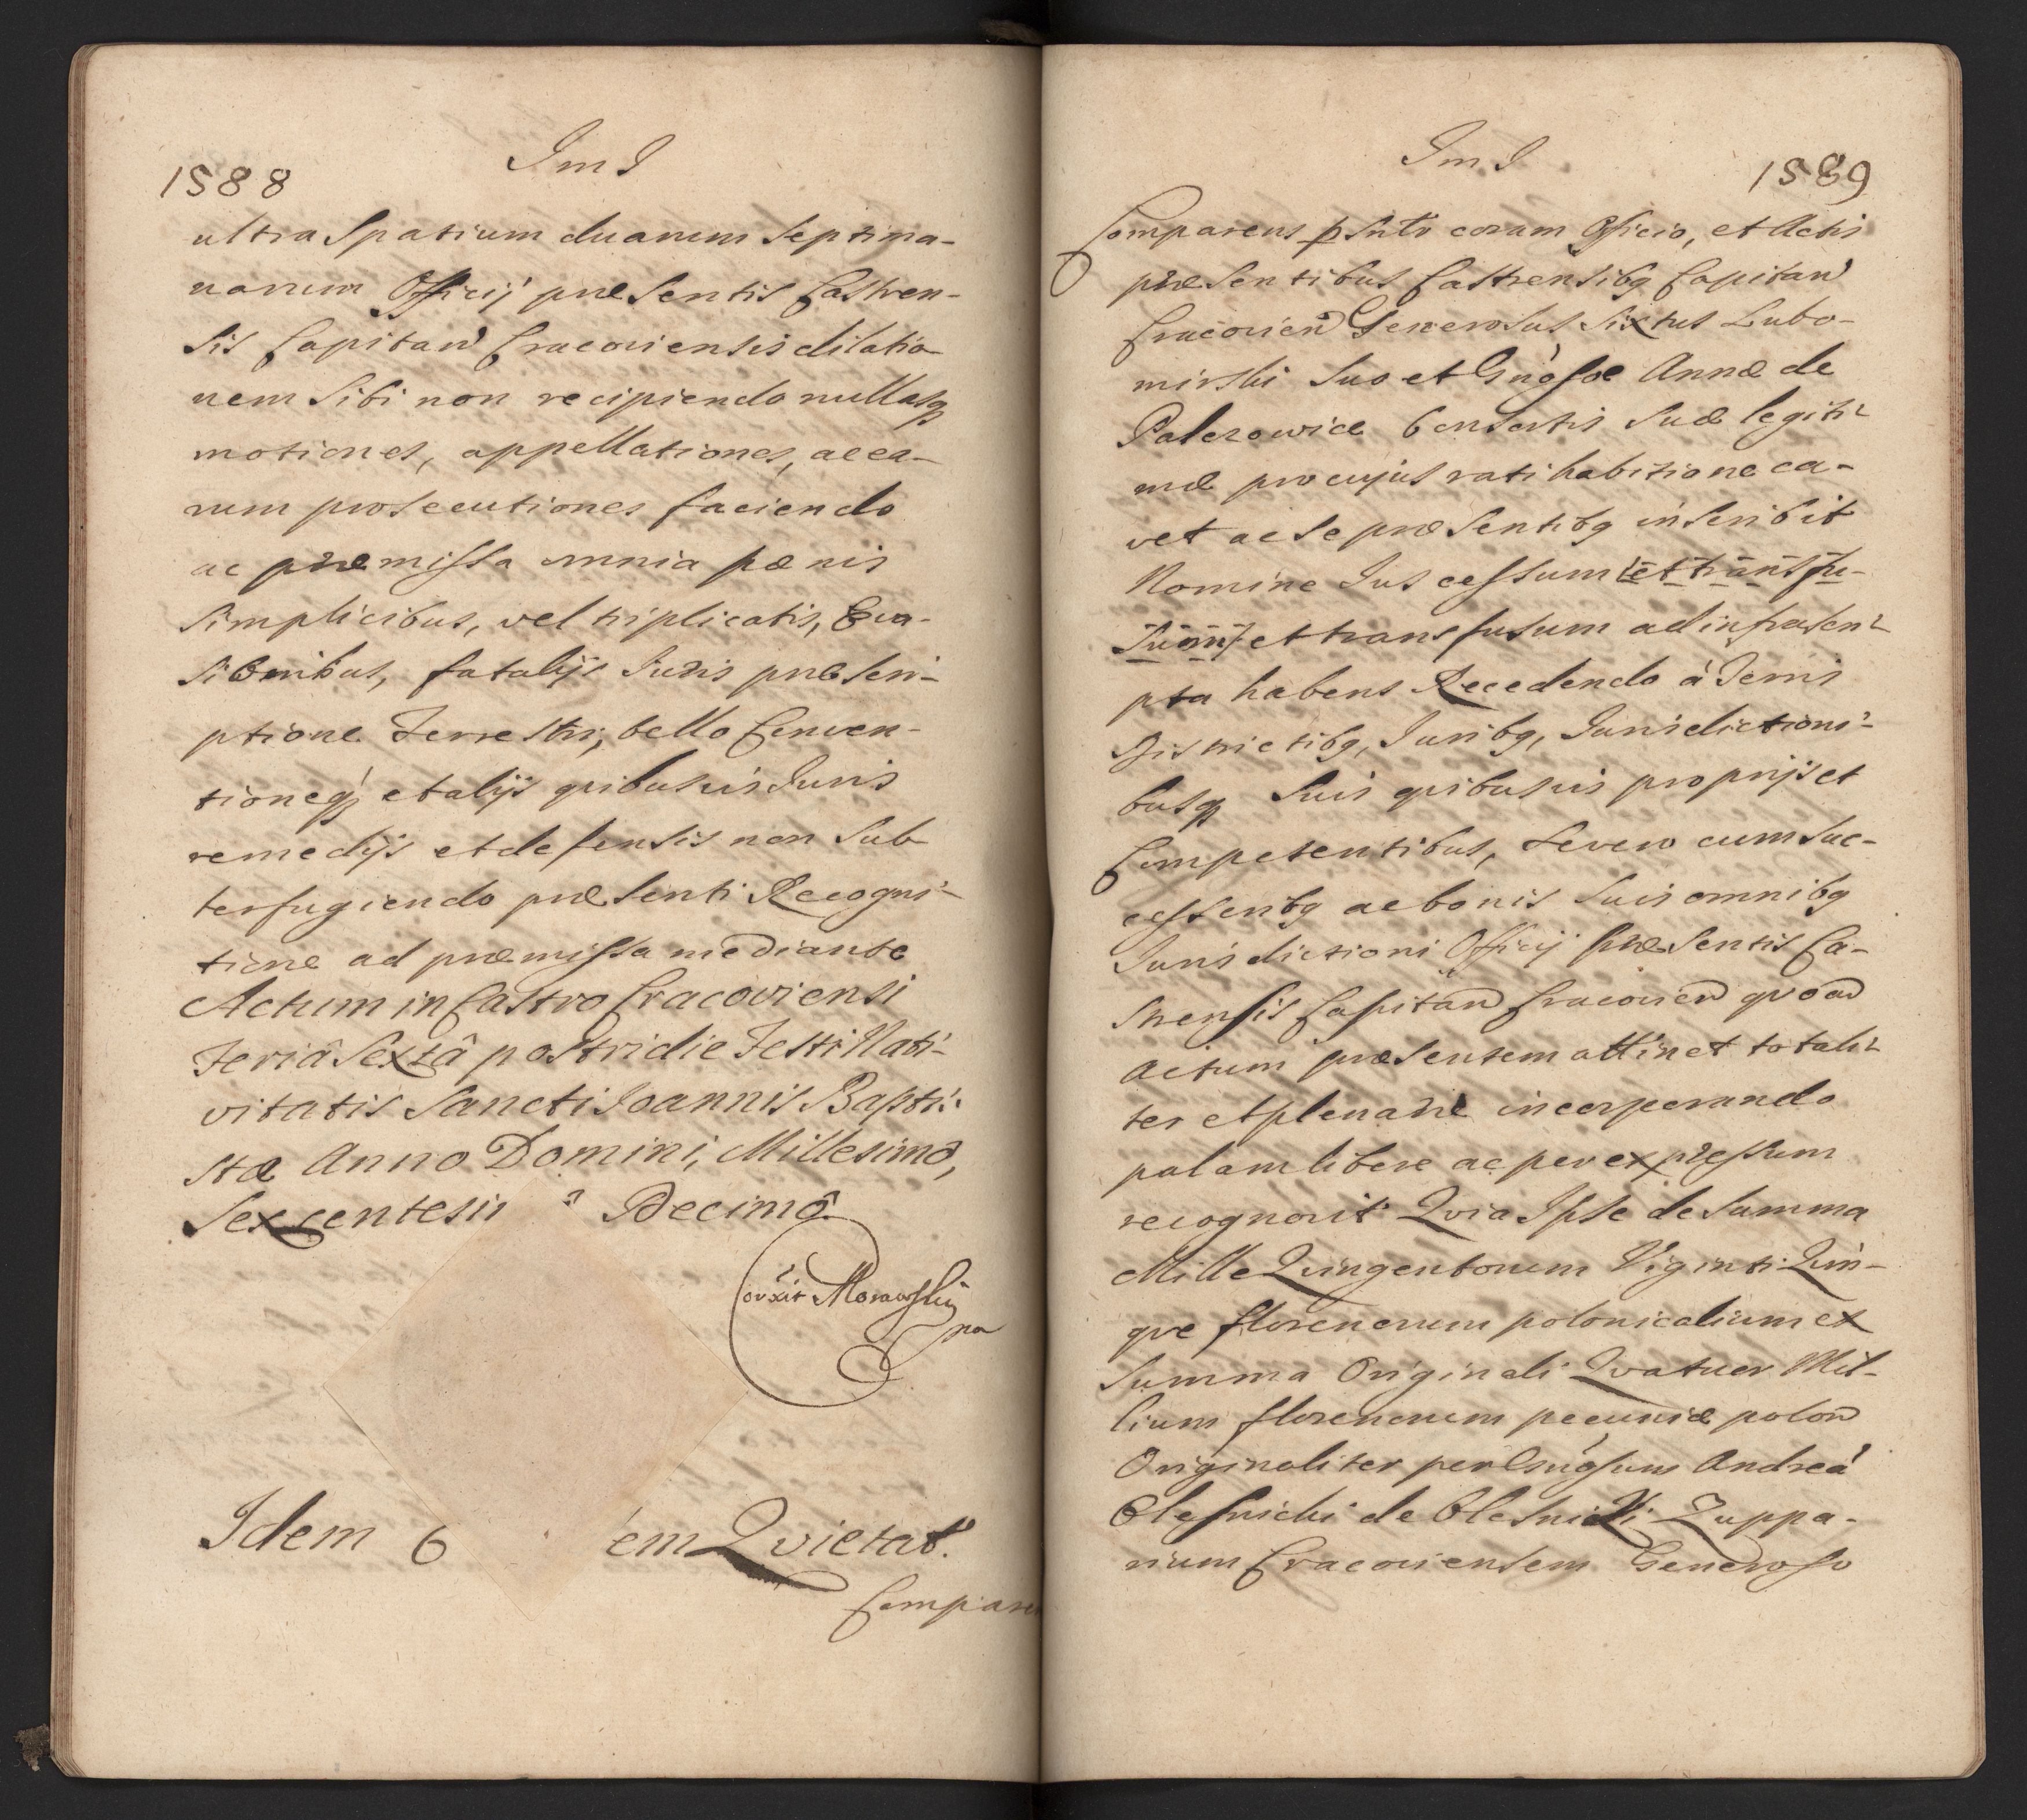 1588
JmJ
ultra Spatium duarum Septima-
narum Officij præsentis Castren-
sis Capitan Cracoviensis dilatio-
nem Sibi non recipiendo nullasq
motiones, appellationes, ac ea-
rum prosecutiones faciendo
ac præmissa omnia pænis
Simplicibus, vel triplicatis, Eva-
sionibus, fatalijs Juris præscri-
ptione Terrestri, bello Conven-
tioneq et alijs qvibusvis Juris
remedijs et defensis non Sub
terfugiendo præsenti Recogni-
tione ad præmissa mediante
Actum in Castro Cracoviensi
Feriâ Sextâ postridie Festi Nati-
vitatis Sancti Joannis Bapti-
stæ Anno Domini, Millesimô,
Sexcentesi Decimô
Corxit Morawski
pa
Idem em Qvietat.
Comparen
JmJ
1589
Comparens psntr coram Officio, et Actis
præsentibus Castrensibq Capitan
Cracovien Generosus Sixtus Lubo-
mirski Suo et Gnosæ Annæ de
Palczowice Consortis Suæ legiti-
mæ pro cujus ratihabitione ca-
vet ac se præsentibq inscribit
Nomine Jus cessum (et transfu-
suom) et transfusum ad infrascri-
pta habens Recedendo à Terris
Districtibq, Juribq, Jurisdictioni-
busq Suis qvibusvis proprijs et
Competentibus, se vero cum Suc-
cessoribq ac bonis Suis omnibq
Jurisdictioni Officij præsentis Ca-
strensis Capitan Cracovien qvoad
actum præsentem attinet totali-
ter et plenarie incorporando
palam libere ac per expressum
recognovit Qvia Ipse de Summa
Mille Qvingentorum Viginti Qvin-
qve florenorum polonicalium ex
Summa Originali Qvatuor Mil-
lium florenorum pecuniæ polon
Originaliter per Gnosum Andreā
Olesnicki de Olesnicki Zuppa-
rium Cracoviensem Generoso